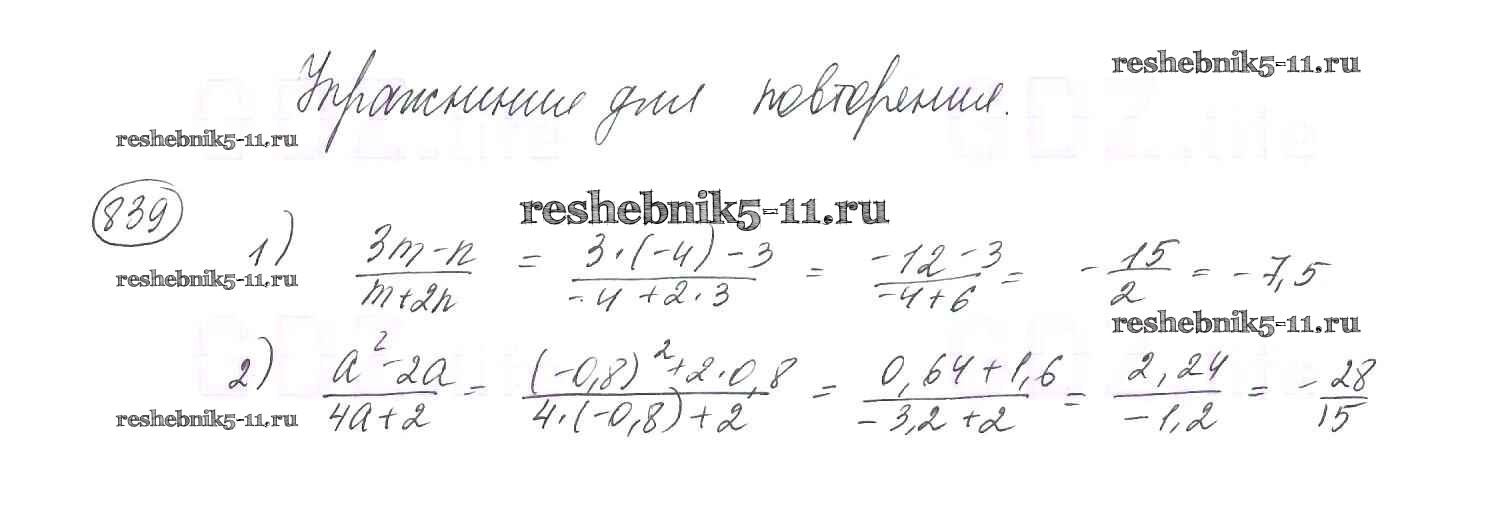 reshebnik5-11.ru
Упражнения для повторения.
reshebnik5-11.ru
839
reshebnik5-11.ru
1) (3m-n)/(m+2n) = (3·(-4)-3)/(-4+2·3) = (-12-3)/(-4+6) = -15/2 = -7,5
reshebnik5-11.ru
reshebnik5-11.ru
2) (a²-2a)/(4a+2) = ((-0,8)²+2·0,8)/(4·(-0,8)+2) = (0,64+1,6)/(-3,2+2) = 2,24/(-1,2) = -28/15
reshebnik5-11.ru